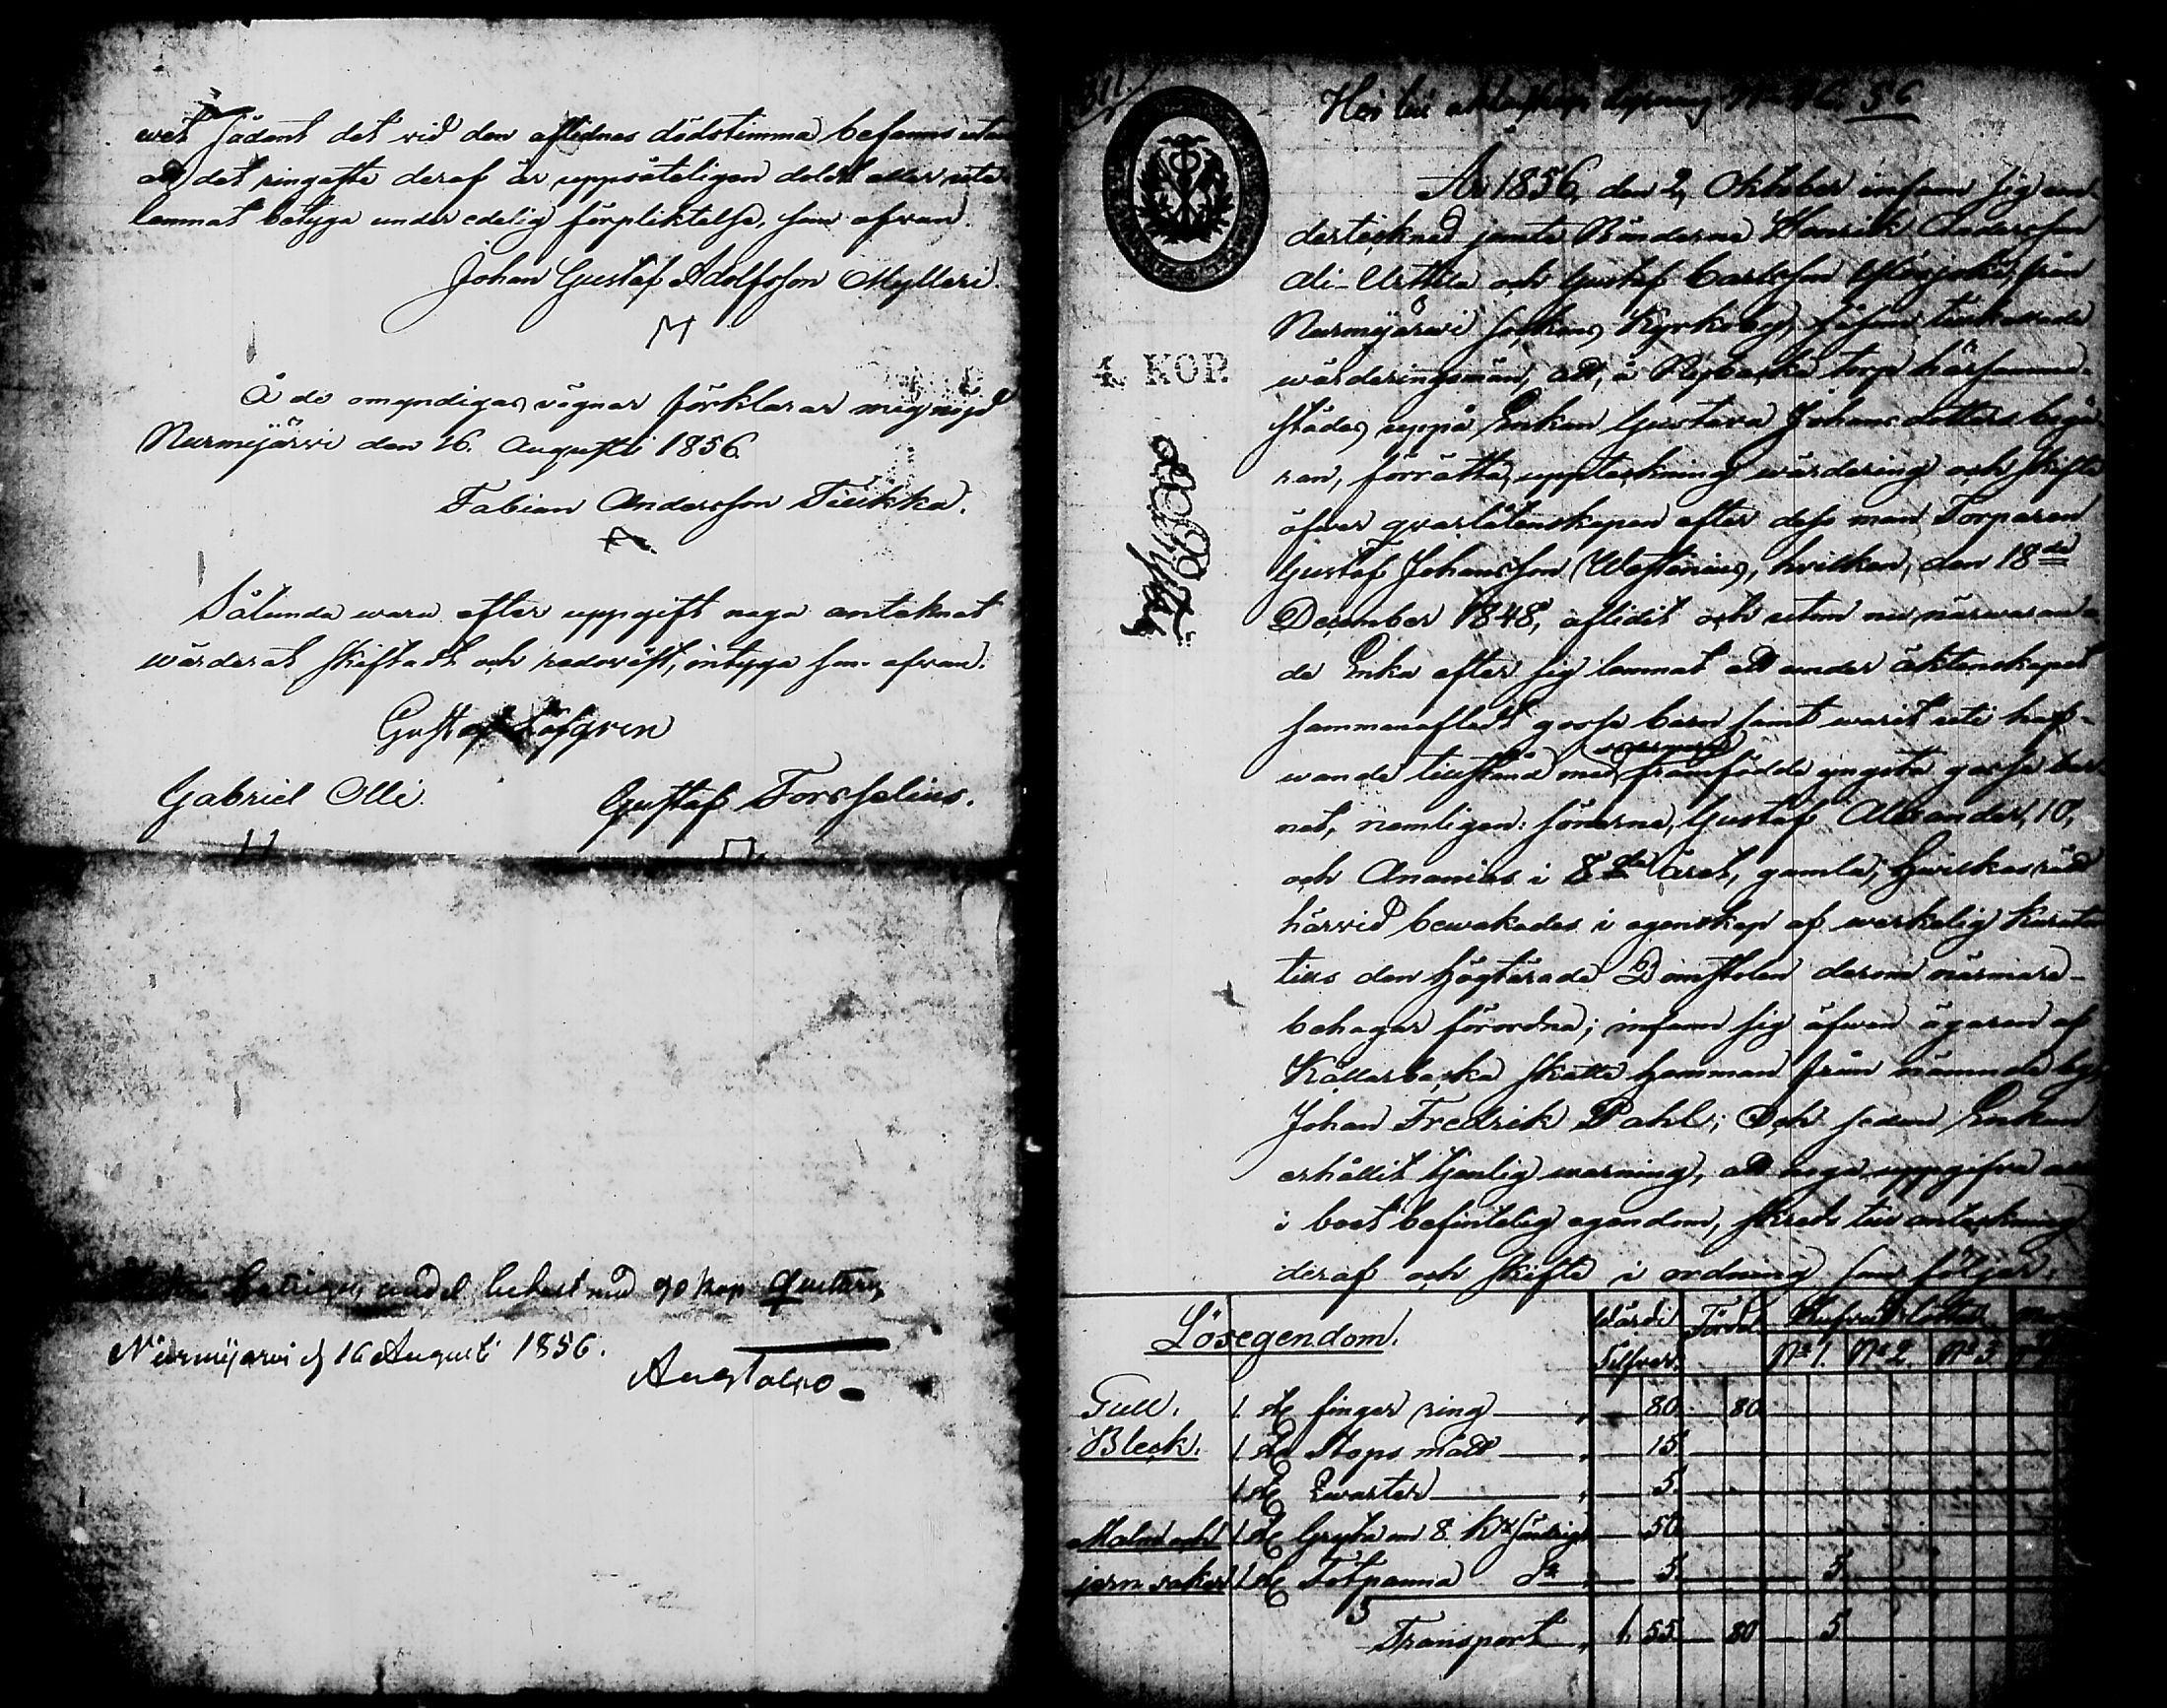 wet sådant det vid den aflidnes dödstimma befanns utan
att det ringaste deraf är uppsåteligen doldt eller ute-
lemnat betyga under edelig förpliktelse, som ofvan.
Johan Gustaf Adolfsson Mylleri.
Å de omyndigas vägnar förklarar mig nöjd
Nurmijärvi den 16. Augusti 1856.
Fabian Andersson Tiukka.
Sålunda wara efter uppgift noga antecknat
wärderat skiftadt och redovist, intyga som ofvan.
Gustaf Löfgren
Gabriel Olli.
Gustaf Forsselius.
90 kop
Nurmijärvi d 16 Augusti 1856.
311.
56
År 1856, den 2, Oktober infann sig un-
dertecknad jemte Bönderne Henrik Andersson
Ali-Urttila och Gustaf Carlsson från
Nurmijärvi Sockens Kyrkoby, såsom tillkallade
wärderingsmän, att, å torp härsamma-
städes, uppå Enkan Gustava Johansdotters begä-
ran, förrätta uppteckning wärdering och skifte
öfver qvarlåtenskapen efter dess man Torparen
Gustaf Johansson Westenius, hvilken, den 18de
December 1848, aflidit och utom nu närwaran-
de Enka efter sig lemnat ett under äktenskapet
sammanafladt gosse barn samt warit uti haf-
wande tillstånd med framfödde yngsta gosse bar-
net, nemligen: sönerna, Gustaf Alexander, 10,
och Ananias i 8de året, gamla; hvilkas rätt
härvid bewakades i egenskap af werkelig
tills den Högtärade Domstolen derom närmare
behagar förordna; infann sig äfwen ägaren af
Källarbacka skatte hemman från nämnde by,
Johan Fredrik Dahl; Och sedan Enkan
erhållit tjenlig warning, att noga uppgifva all
i boet befintelig egendom, skreds till anteckning
deraf och skifte i ordning som följer.
4. KOP.
Lösegendom.
Wärde
Silfver.
No 1. No 2. No 3.
Gull. 1. st finger ring 80. 80
Bleck. 1 st Stops mått 15.
1 st Qvarter 5
Malm och 1 st Gryta om 8. 50
jern saker 1 st Fotpanna 5. 5
Transport 1. 55. 80 5.